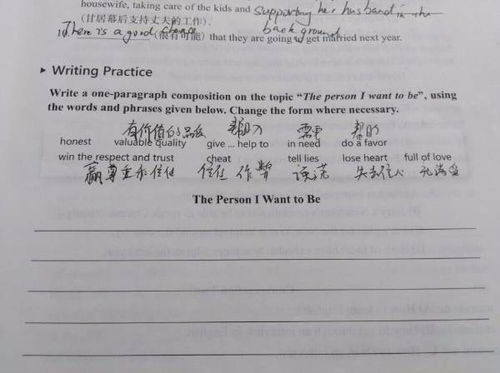 housewife, taking care of the kids and supporting her husband in the
(甘居幕后支持丈夫的工作). background
There is a good chance (很有可能) that they are going to get married next year.
▸ Writing Practice
Write a one-paragraph composition on the topic "The person I want to be", using
the words and phrases given below. Change the form where necessary.
有价值的品质 帮助 需要 帮助
honest valuable quality give ... help to in need do a favor
win the respect and trust cheat tell lies lose heart full of love
赢尊重和信任 信任 作弊 说谎 失去信心 充满爱
The Person I Want to Be